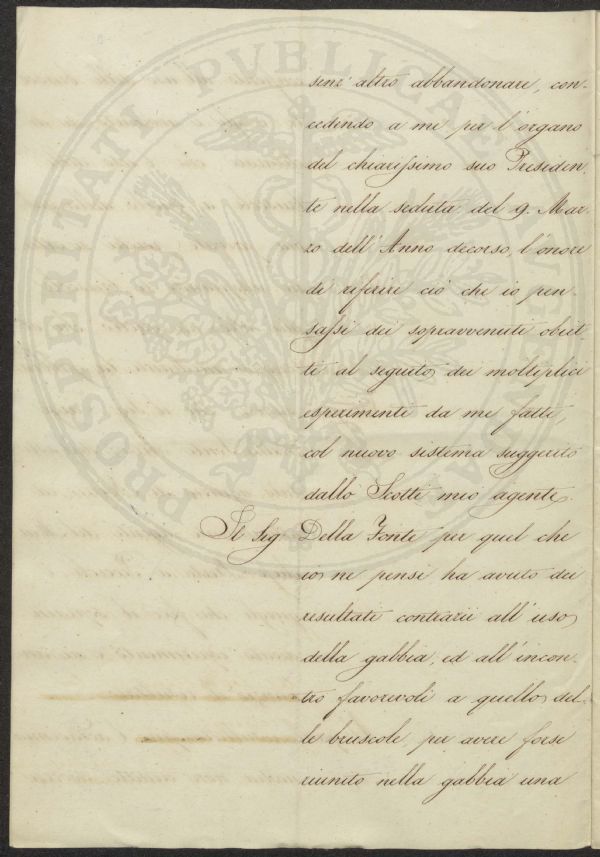 senz' altro abbandonare, con-
cedendo a me per l'organo
del chiarissimo suo Presiden-
te nella seduta, del 9. Mar-
zo dell' Anno decorso, l'onore
di riferire ciò che io pen-
sassi dei sopravvenuti obiet-
ti al seguito dei moltiplici
esperimenti da me fatti,
col nuovo sistema suggerito
dallo Scotti mio agente.
Il Sig Della Fonte per quel che
io ne pensi ha avuto dei
resultati contrarii all' uso
della gabbia, ed all' incon-
tro favorevoli a quello del-
le bruscole, per avere forse
riunito nella gabbia una
PROSPERITATI PVBLICAE